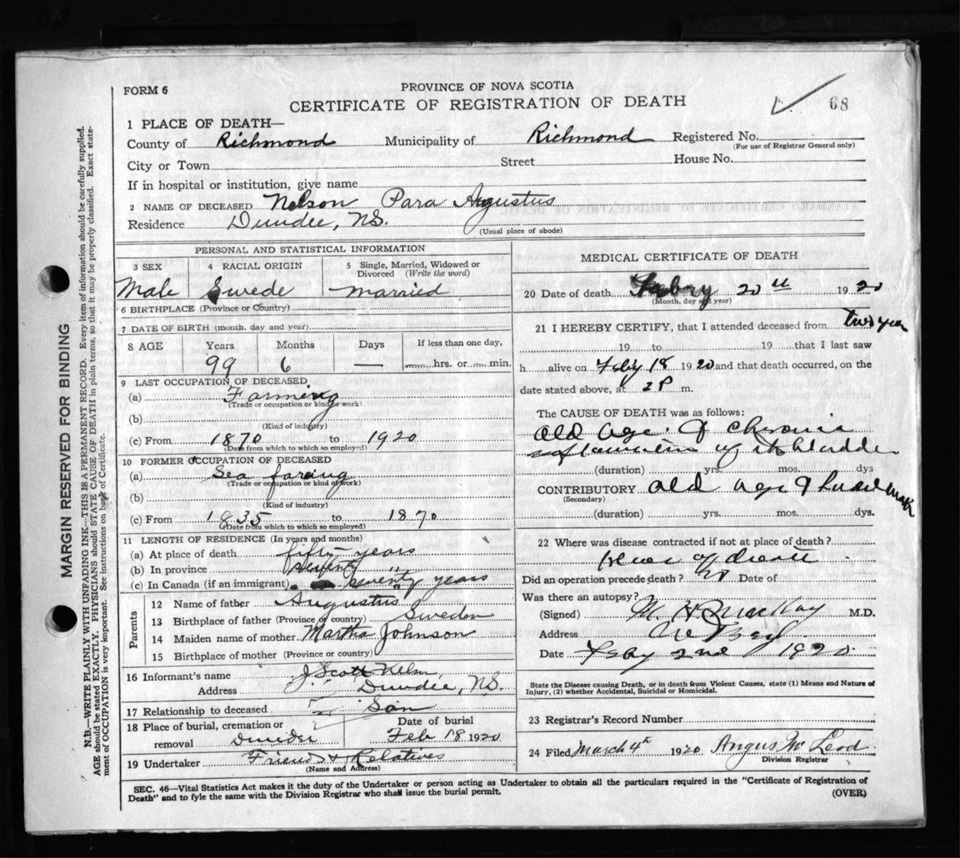 FORM 6
PROVINCE OF NOVA SCOTIA
CERTIFICATE OF REGISTRATION OF DEATH
68
1 PLACE OF DEATH—
County of Richmond Municipality of Richmond Registered No.
(For use of Registrar General only)
City or Town Street House No.
If in hospital or institution, give name
2 NAME OF DECEASED Nelson Para Augustus
Residence Dundee, N.S.
(Usual place of abode)
PERSONAL AND STATISTICAL INFORMATION
3 SEX 4 RACIAL ORIGIN 5 Single, Married, Widowed or
Divorced (Write the word)
Male Swede Married
6 BIRTHPLACE (Province or Country)
7 DATE OF BIRTH (month, day and year)
8 AGE Years Months Days If less than one day,
99 6 — hrs. or min.
9 LAST OCCUPATION OF DECEASED
(a) Farming
(Trade or occupation or kind of work)
(b)
(Kind of industry)
(c) From 1870 to 1920
(Date from which to which so employed)
10 FORMER OCCUPATION OF DECEASED
(a) Sea faring
(Trade or occupation or kind of work)
(b)
(Kind of industry)
(c) From 1835 to 1870
(Date from which to which so employed)
11 LENGTH OF RESIDENCE (In years and months)
(a) At place of death fifty years
(b) In province seventy "
(c) In Canada (if an immigrant) seventy years
Parents
12 Name of father Augustus
13 Birthplace of father (Province or country) Sweden
14 Maiden name of mother Martha Johnson
15 Birthplace of mother (Province or country)
16 Informant's name J. Scott
Address Dundee, N.S.
17 Relationship to deceased Son
18 Place of burial, cremation or Date of burial
removal Dundee Feb 18 1920
19 Undertaker Friends & Relatives
(Name and Address)
MEDICAL CERTIFICATE OF DEATH
20 Date of death Febry 20th 1920
(Month, day and year)
21 I HEREBY CERTIFY, that I attended deceased from two year
19 to 19 that I last saw
h alive on Feby 18 1920 and that death occurred, on the
date stated above, at 2 P m.
The CAUSE OF DEATH was as follows:
old age & chronic
of the bladder
(duration) yrs. mos. dys
CONTRIBUTORY old age &
(Secondary)
(duration) yrs. mos. dys.
22 Where was disease contracted if not at place of death?
place of death
Did an operation precede death? Date of
Was there an autopsy?
(Signed) M.D.
Address
Date Feby 2nd 1920
State the Disease causing Death, or in death from Violent Causes, state (1) Means and Nature of
Injury, (2) whether Accidental, Suicidal or Homicidal.
23 Registrar's Record Number
24 Filed March 4th 1920 Angus McLeod
Division Registrar
SEC. 46—Vital Statistics Act makes it the duty of the Undertaker or person acting as Undertaker to obtain all the particulars required in the "Certificate of Registration of
Death" and to fyle the same with the Division Registrar who shall issue the burial permit.
(OVER)
MARGIN RESERVED FOR BINDING
N.B.—WRITE PLAINLY WITH UNFADING INK—THIS IS A PERMANENT RECORD. Every item of information should be carefully supplied.
AGE should be stated EXACTLY. PHYSICIANS should STATE CAUSE OF DEATH in plain terms, so that it may be properly classified. Exact state-
ment of OCCUPATION is very important. See instructions on back of Certificate.